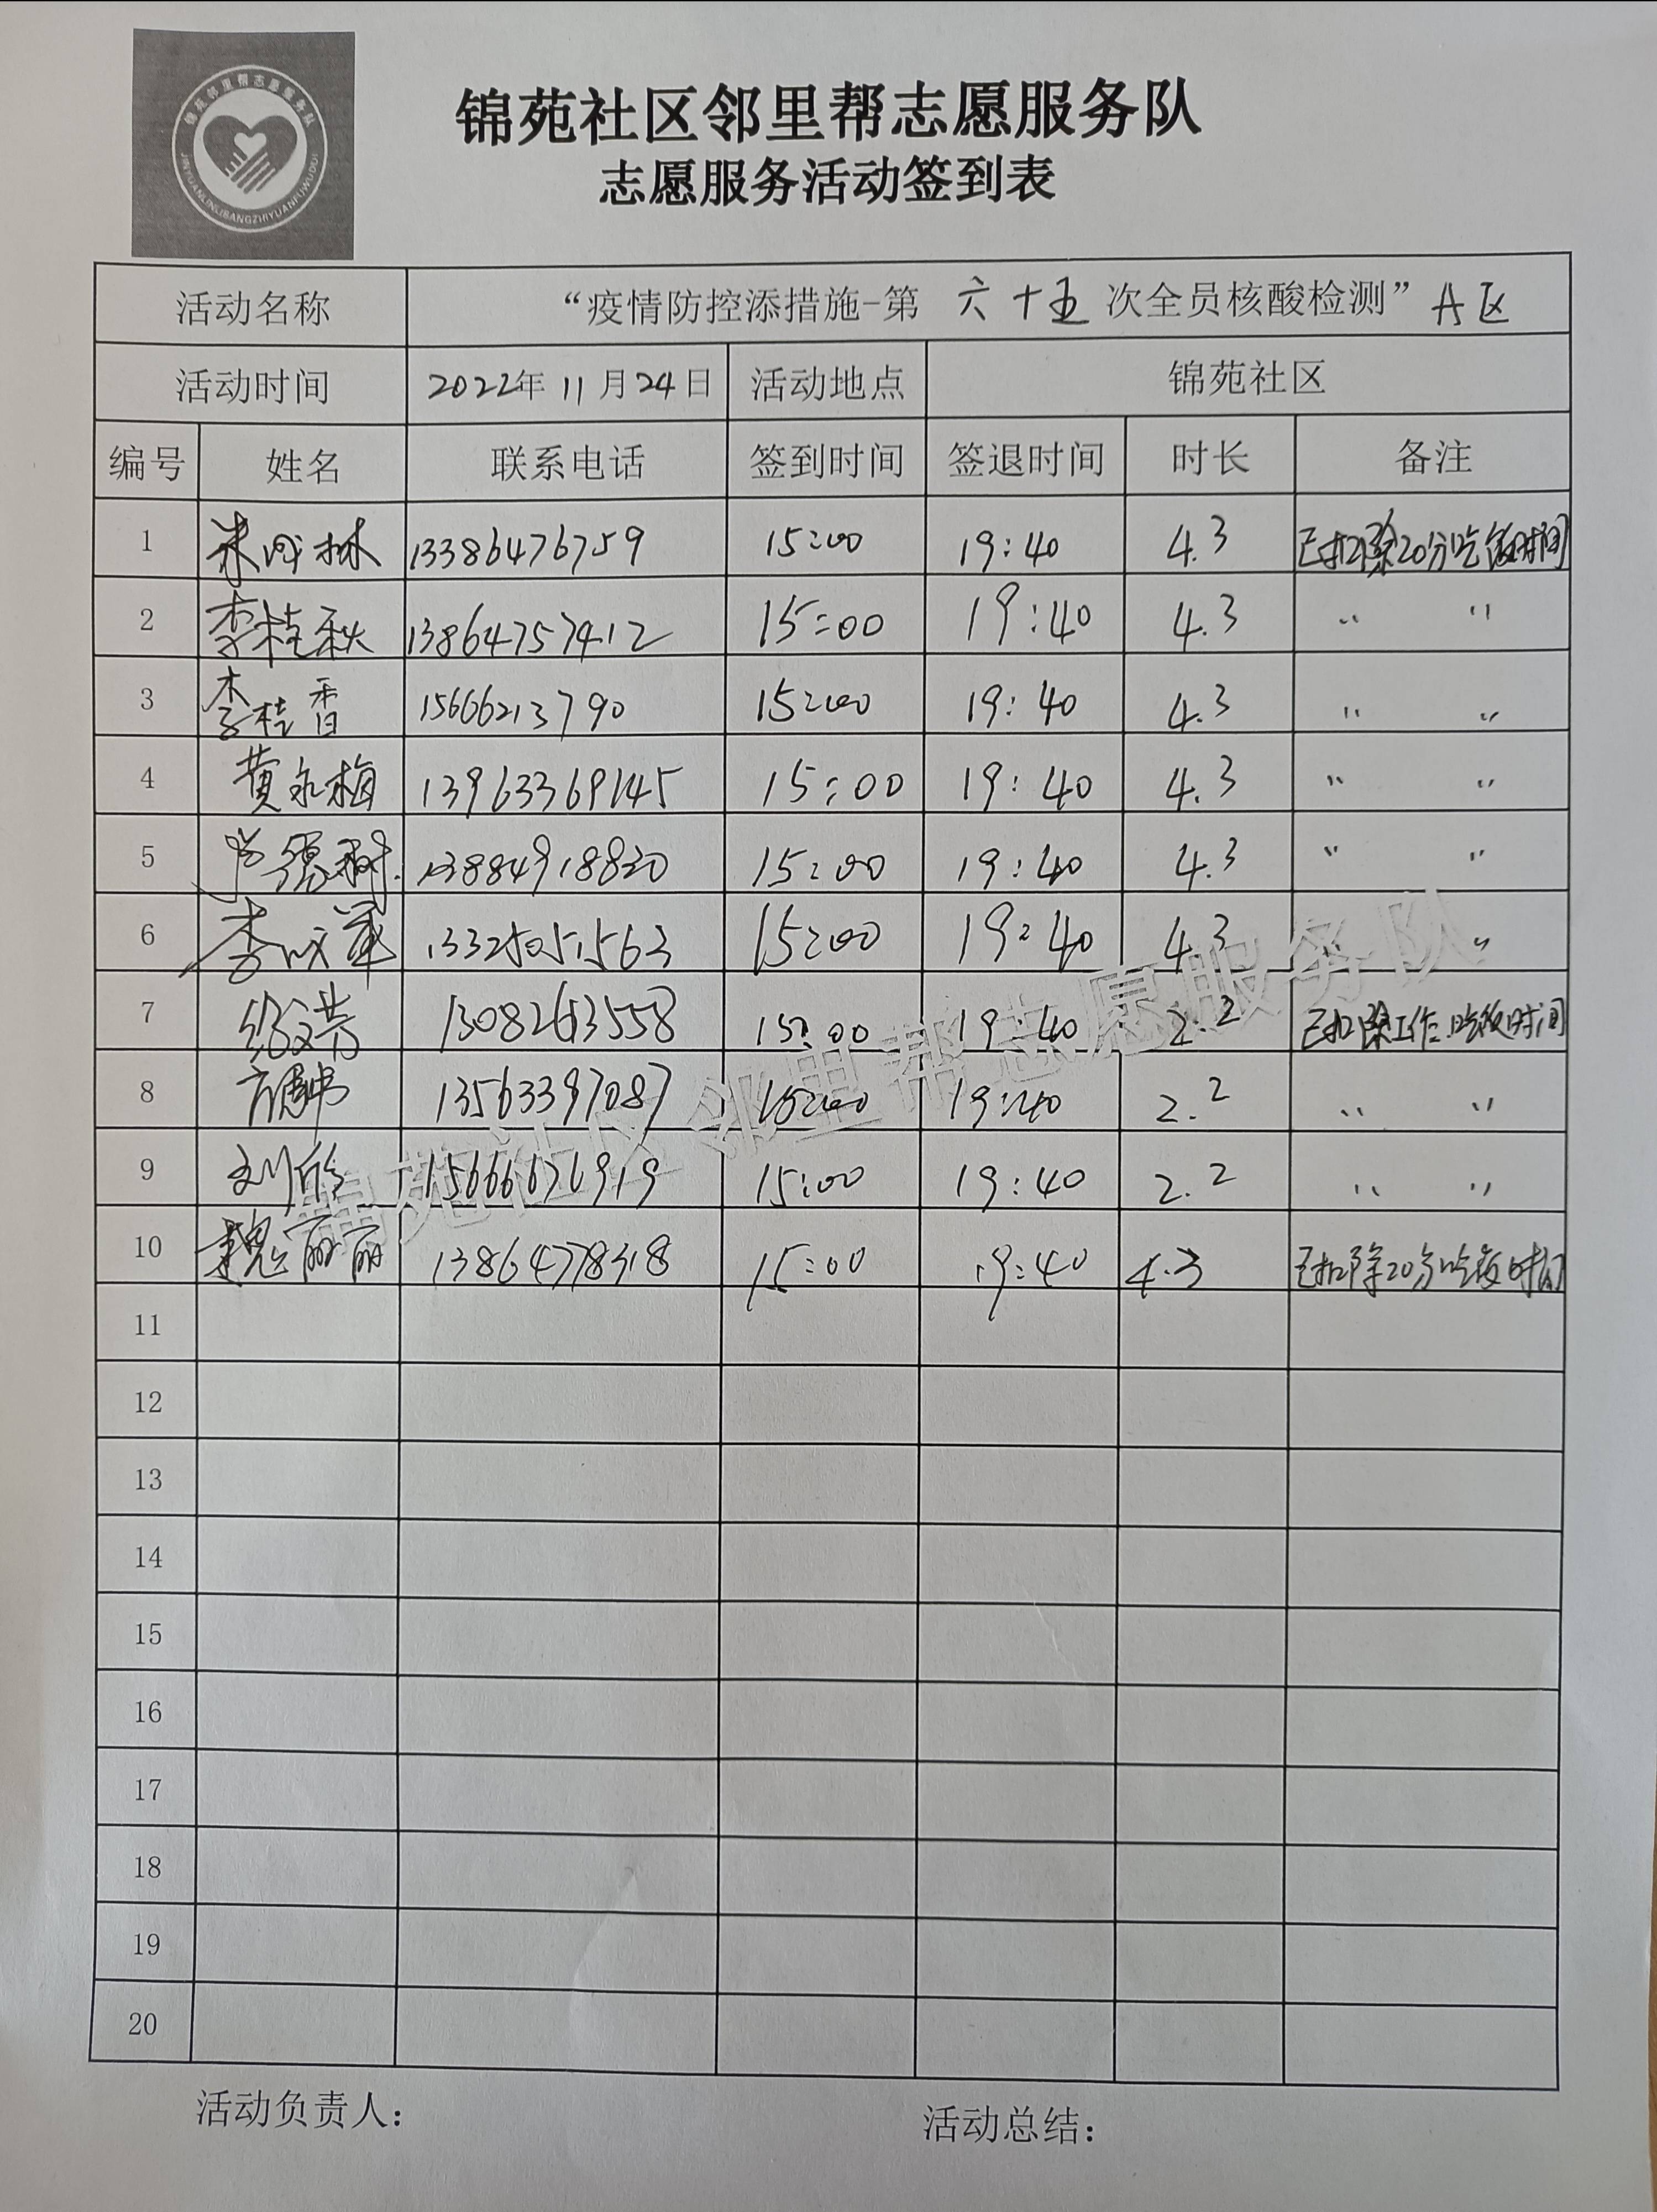 锦苑邻里帮志愿服务队
JINYUANLINLIBANGZHIYUANFUWUDUI
锦苑社区邻里帮志愿服务队
志愿服务活动签到表
活动名称 “疫情防控添措施-第 六十五 次全员核酸检测” A区
活动时间 2022年 11 月 24 日 活动地点 锦苑社区
编号 姓名 联系电话 签到时间 签退时间 时长 备注
1 13386476759 15:00 19:40 4.3 已扣除20分吃饭时间
2 李桂秋 13864757412 15:00 19:40 4.3 〃 〃
3 李桂香 15666213790 15:00 19:40 4.3 〃 〃
4 黄永梅 13963369145 15:00 19:40 4.3 〃 〃
5 13884918830 15:00 19:40 4.3 〃 〃
6 13325051563 15:00 19:40 4.3 〃
7 15:00 19:40 2.2 已扣除工作.吃饭时间
8 13563397087 15:00 19:40 2.2 〃 〃
9 刘欣 15666676919 15:00 19:40 2.2 〃 〃
10 魏丽丽 13864778318 15:00 19:40 4.3 已扣除20分吃饭时间
11
12
13
14
15
16
17
18
19
20
锦苑社区邻里帮志愿服务队
活动负责人： 活动总结：